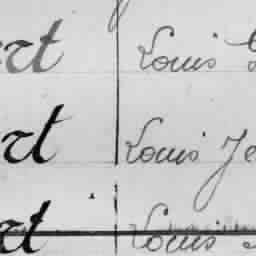 rt Louis
rt Louis Je
rt Louis